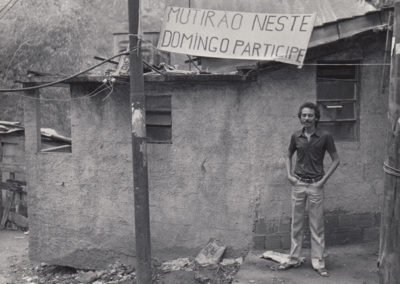 MUTIRAO NESTE
DOMINGO PARTICIPE